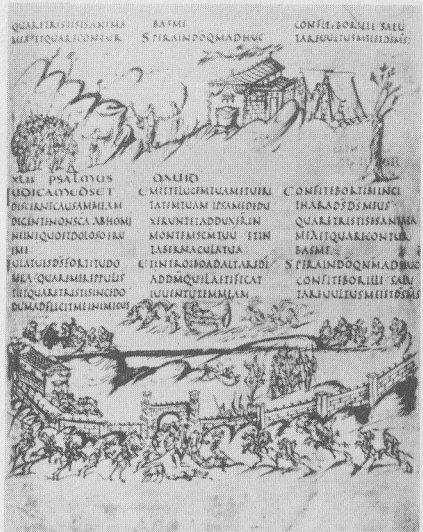 QUARETRISTISESANIMA
MEAETQUARECONTUR
BASME
SPERAINDOQMADHUC
CONFITEBORILLI SALU
TAREUULTUSMEIETDSMS;
XLII PSALMUS DAUID
UDICAMEDSET
DISCERNECAUSAMMEAM
DEGENTENONSCA ABHOMI
NEINIQUOETDOLOSOERU
EME
UIATUESDSFORTITUDO
MEA QUAREMEREPPULIS
TIETQUARETRISTISINCEDO
DUMADFLIGITMEINIMICUS
EMITTELUCEMTUAMETUERI
TATEMTUAM IPSAMEDEDU
XERUNTETADDUXERIN
MONTEMSCMTUU ETIN
TABERNACULATUA
ETINTROIBOADALTAREDI
ADDMQUILAETIFICAT
IUUENTUTEMMEAM
CONFITEBORTIBIINCI
THARADSDSMEUS
QUARETRISTISESANIMA
MEAETQUARECONTUR
BASME
SPERAINDOQNMADHUC
CONFITEBORILLI SALU
TAREUULTUSMEIETDSMS